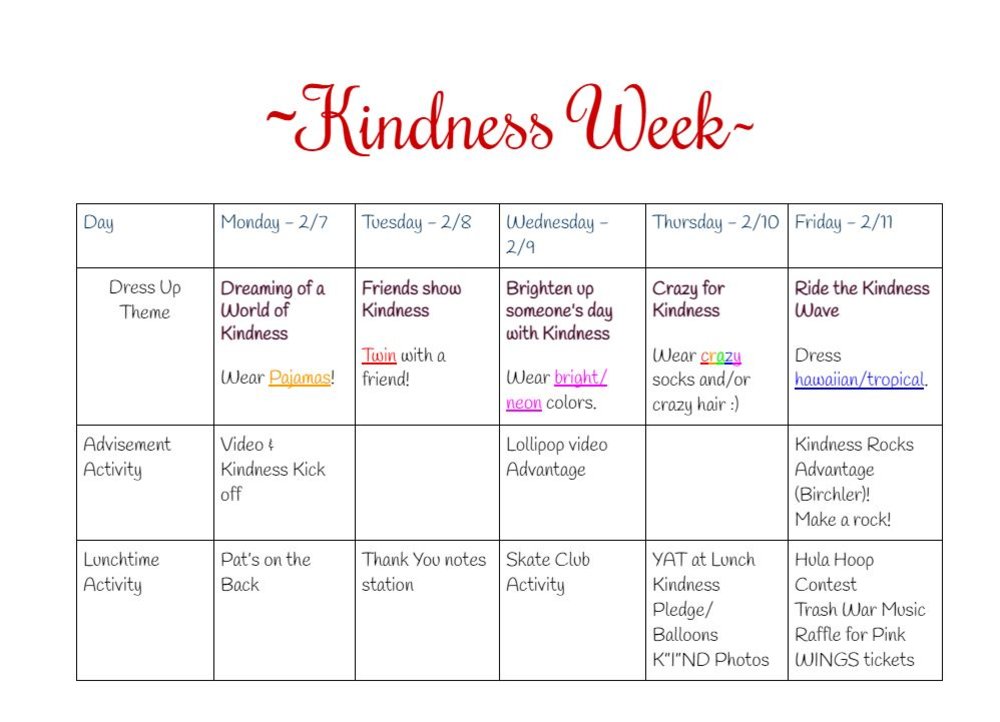 ~Kindness Week~
Day
Monday - 2/7
Tuesday - 2/8
Wednesday -
2/9
Thursday - 2/10
Friday - 2/11
Dress Up
Theme
Dreaming of a
World of
Kindness
Wear Pajamas!
Friends show
Kindness
Twin with a
friend!
Brighten up
someone's day
with Kindness
Wear bright/
neon colors.
Crazy for
Kindness
Wear crazy
socks and/or
crazy hair :)
Ride the Kindness
Wave
Dress
hawaiian/tropical.
Advisement
Activity
Video &
Kindness Kick
off
Lollipop video
Advantage
Kindness Rocks
Advantage
(Birchler)!
Make a rock!
Lunchtime
Activity
Pat's on the
Back
Thank You notes
station
Skate Club
Activity
YAT at Lunch
Kindness
Pledge/
Balloons
K"I"ND Photos
Hula Hoop
Contest
Trash War Music
Raffle for Pink
WINGS tickets